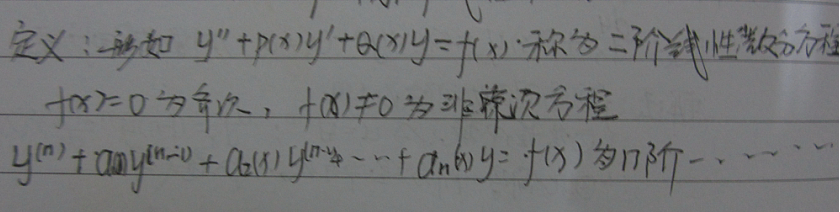 定义：形如 y''+p(x)y'+Q(x)y=f(x)·称为二阶线性微分方程
f(x)=0为齐次，f(x)≠0为非齐次方程
y⁽ⁿ⁾+a₁(x)y⁽ⁿ⁻¹⁾+a₂(x)y⁽ⁿ⁻²⁾+……+aₙ(x)y=f(x)为n阶………